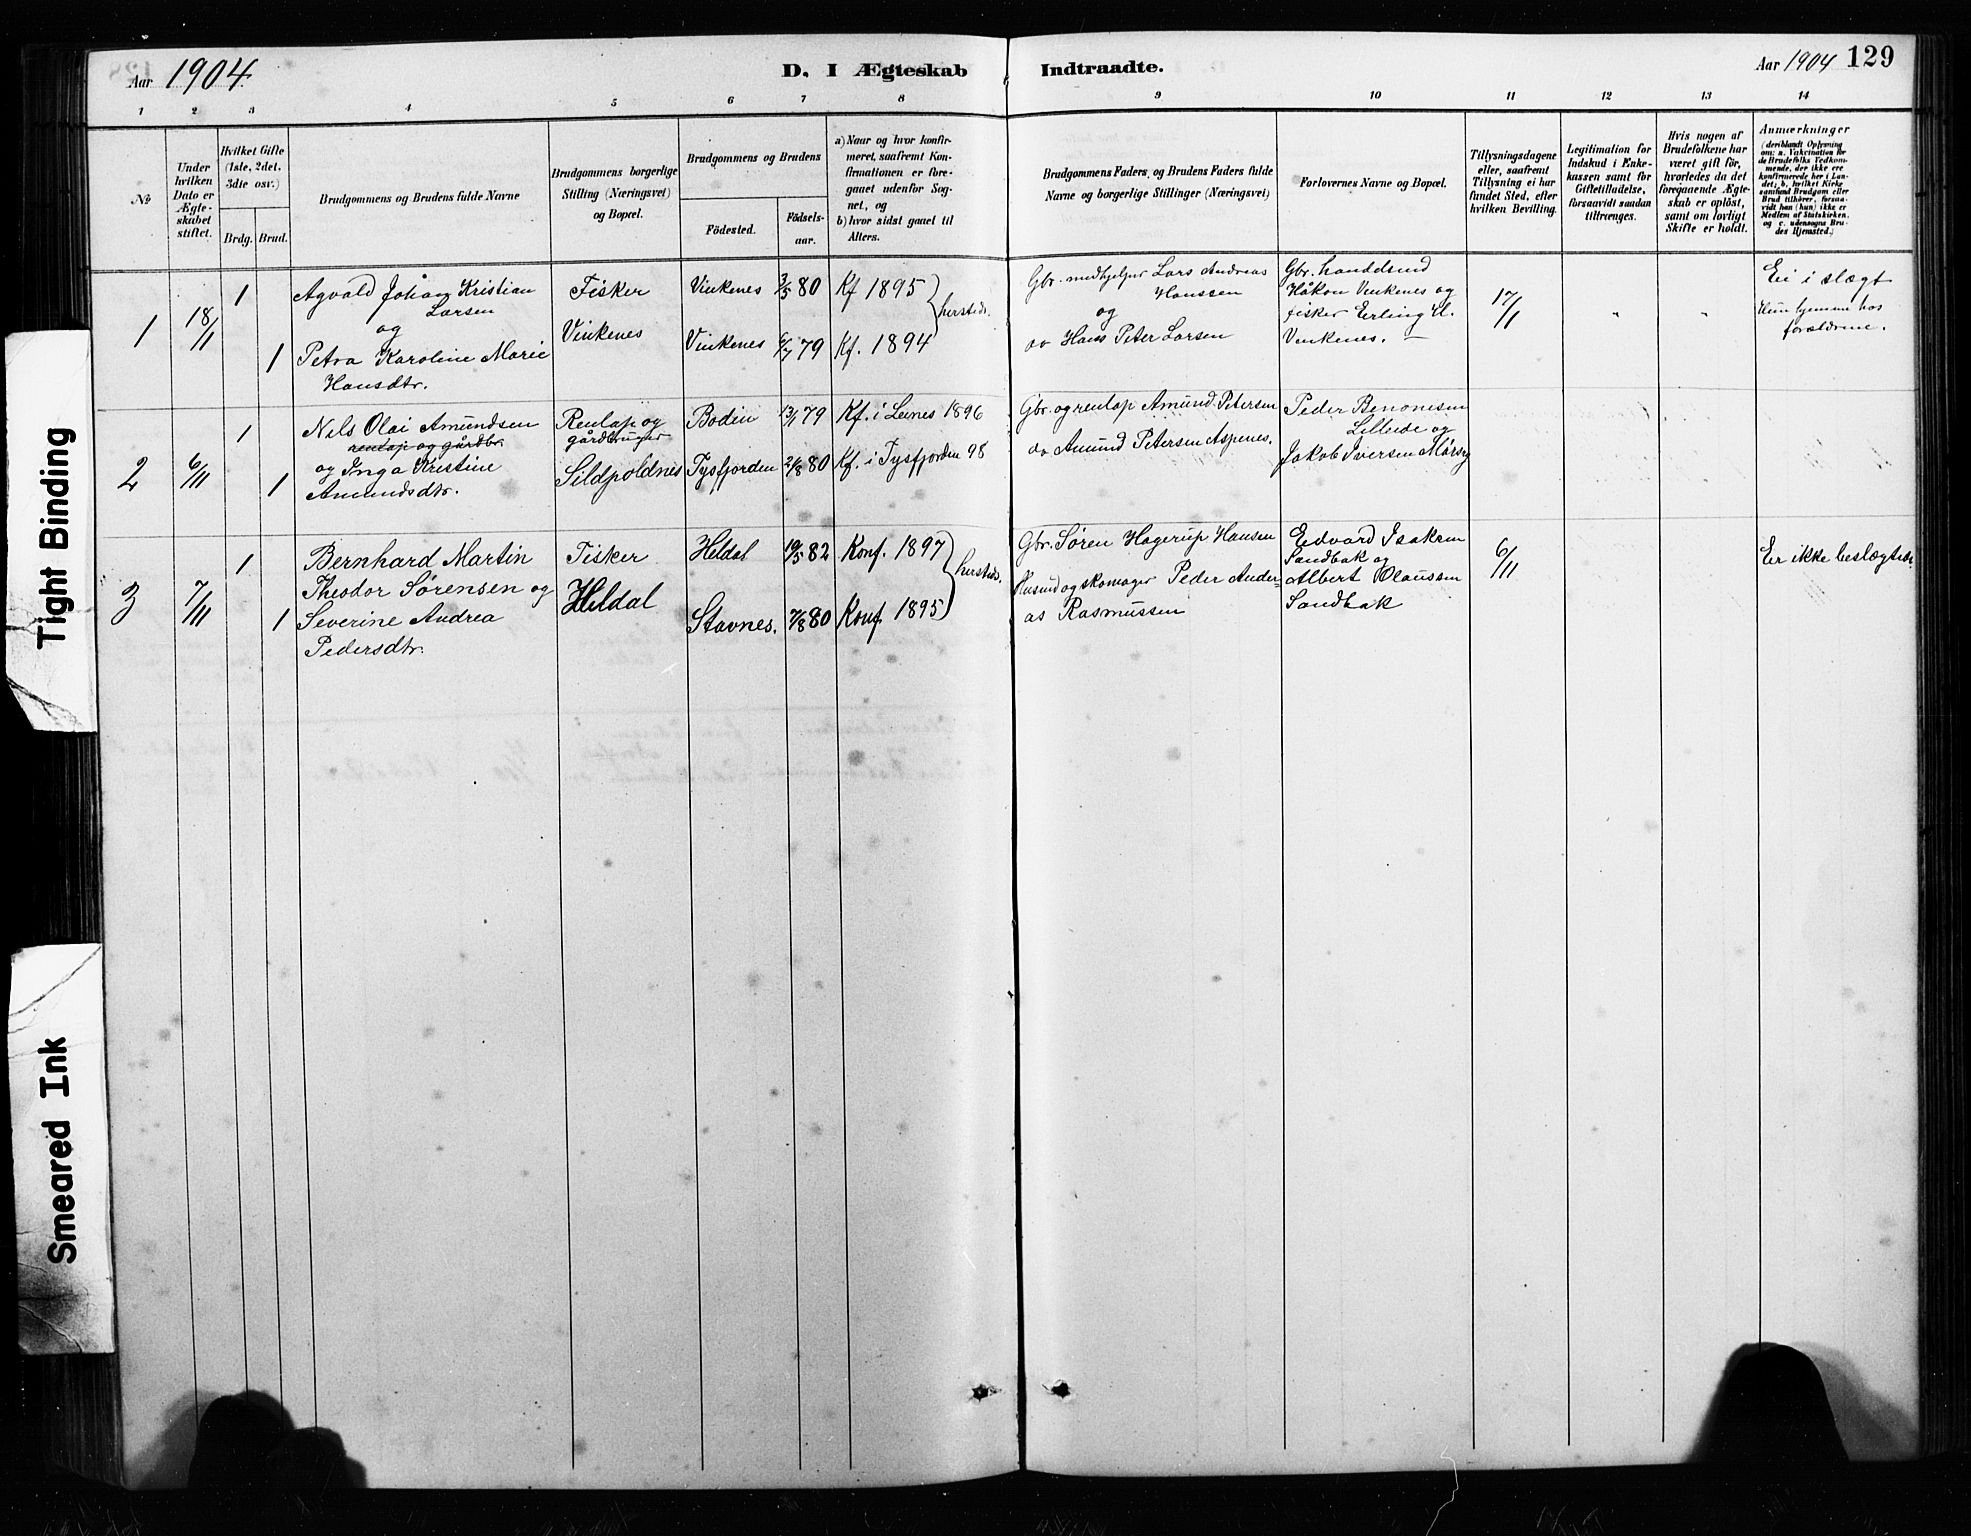 Aar 1904.
D. I Ægteskab Indtraadte.
Aar 1904 129
1 2 3 4 5 6 7 8 9 10 11 12 13 14
No
Under
hvilken
Dato er
Ægte-
skabet
stiftet.
Hvilket Gifte
(1ste, 2det,
3die osv.)
Brdg. Brud.
Brudgommens og Brudens fulde Navne
Brudgommens borgerlige
Stilling (Næringsvei)
og Bopæl.
Brudgommens og Brudens
Fødested.
Fødsels-
aar.
a) Naar og hvor konfir-
meret, saafremt Kon-
firmationen er fore-
gaaet udenfor Sog-
net, og
b) hvor sidst gaaet til
Alters.
Brudgommens Faders, og Brudens Faders fulde
Navne og borgerlige Stillinger (Næringsvei)
Forlovernes Navne og Bopæl.
Tillysningsdagene
eller, saafremt
Tillysning ei har
fundet Sted, efter
hvilken Bevilling.
Legitimation for
Indskud i Enke-
kassen samt for
Giftetilladelse,
forsaavidt saadan
tiltrænges.
Hvis nogen af
Brudefolkene har
været gift før,
hvorledes da det
foregaaende Ægte-
skab er opløst,
samt om lovligt
Skifte er holdt.
Anmærkninger
(deriblandt Oplysning
om: a. Vakcination for
de Brudefolks Vedkom-
mende, der ikke ere
konfirmerede her i Lan-
det; b. hvilket Kirke
samfund Brudgom eller
Brud tilhører, forsaa-
vidt han (hun) ikke er
Medlem af Statskirken.
og c. udensogns Bru-
des Hjemsted.)
1
18/1
1
1
Agvald Johan Kristian
Larsen
og
Petra Karoline Marie
Hansdtr.
Fisker
Vinkenes
Vinkenes 3/5 80
Vinkenes 6/7 79
Kf 1895
Kf. 1894
hersteds.
Gbr. medhjelper Lars Andreas
Hanssen
og
do Hans Peter Larsen
Gbr. handelsmd
Håkon Vinkenes og
fisker Erling H.
Vinkenes.
17/1
"
"
Ei i slægt
Hun hjemme hos
forældrene.
2
6/11
1
1
Nils Olai Amundsen
renlap og gårdbr.
og Inga Kristine
Amundsdtr.
Renlap og
gårdbruger
Sildpoldnes
Bodin 13/1 79
Tysfjorden 2/8 80
Kf. i Leines 1896
Kf. i Tysfjorden 98
Gbr. og renlap Amund Petersen
do Amund Petersen Aspenes.
Peder Benonisen
Lilleide og
Jakob Iversen Mørsv
3
7/11
1
1
Bernhard Martin
Theodor Sørensen og
Severine Andrea
Pedersdtr.
Fisker
Heldal
Heldal 19/5 82
Stavnes. 7/8 80
Konf. 1897
Konf. 1895
hersteds.
Gbr. Søren Hagerup Hansen
Husmd og skomager Peder Ander=
as Rasmussen
Edvard Isaksen
Sandbak og
Albert Olaussen
Sandbak
6/11
Er ikke beslægtede.
Tight Binding
Smeared Ink